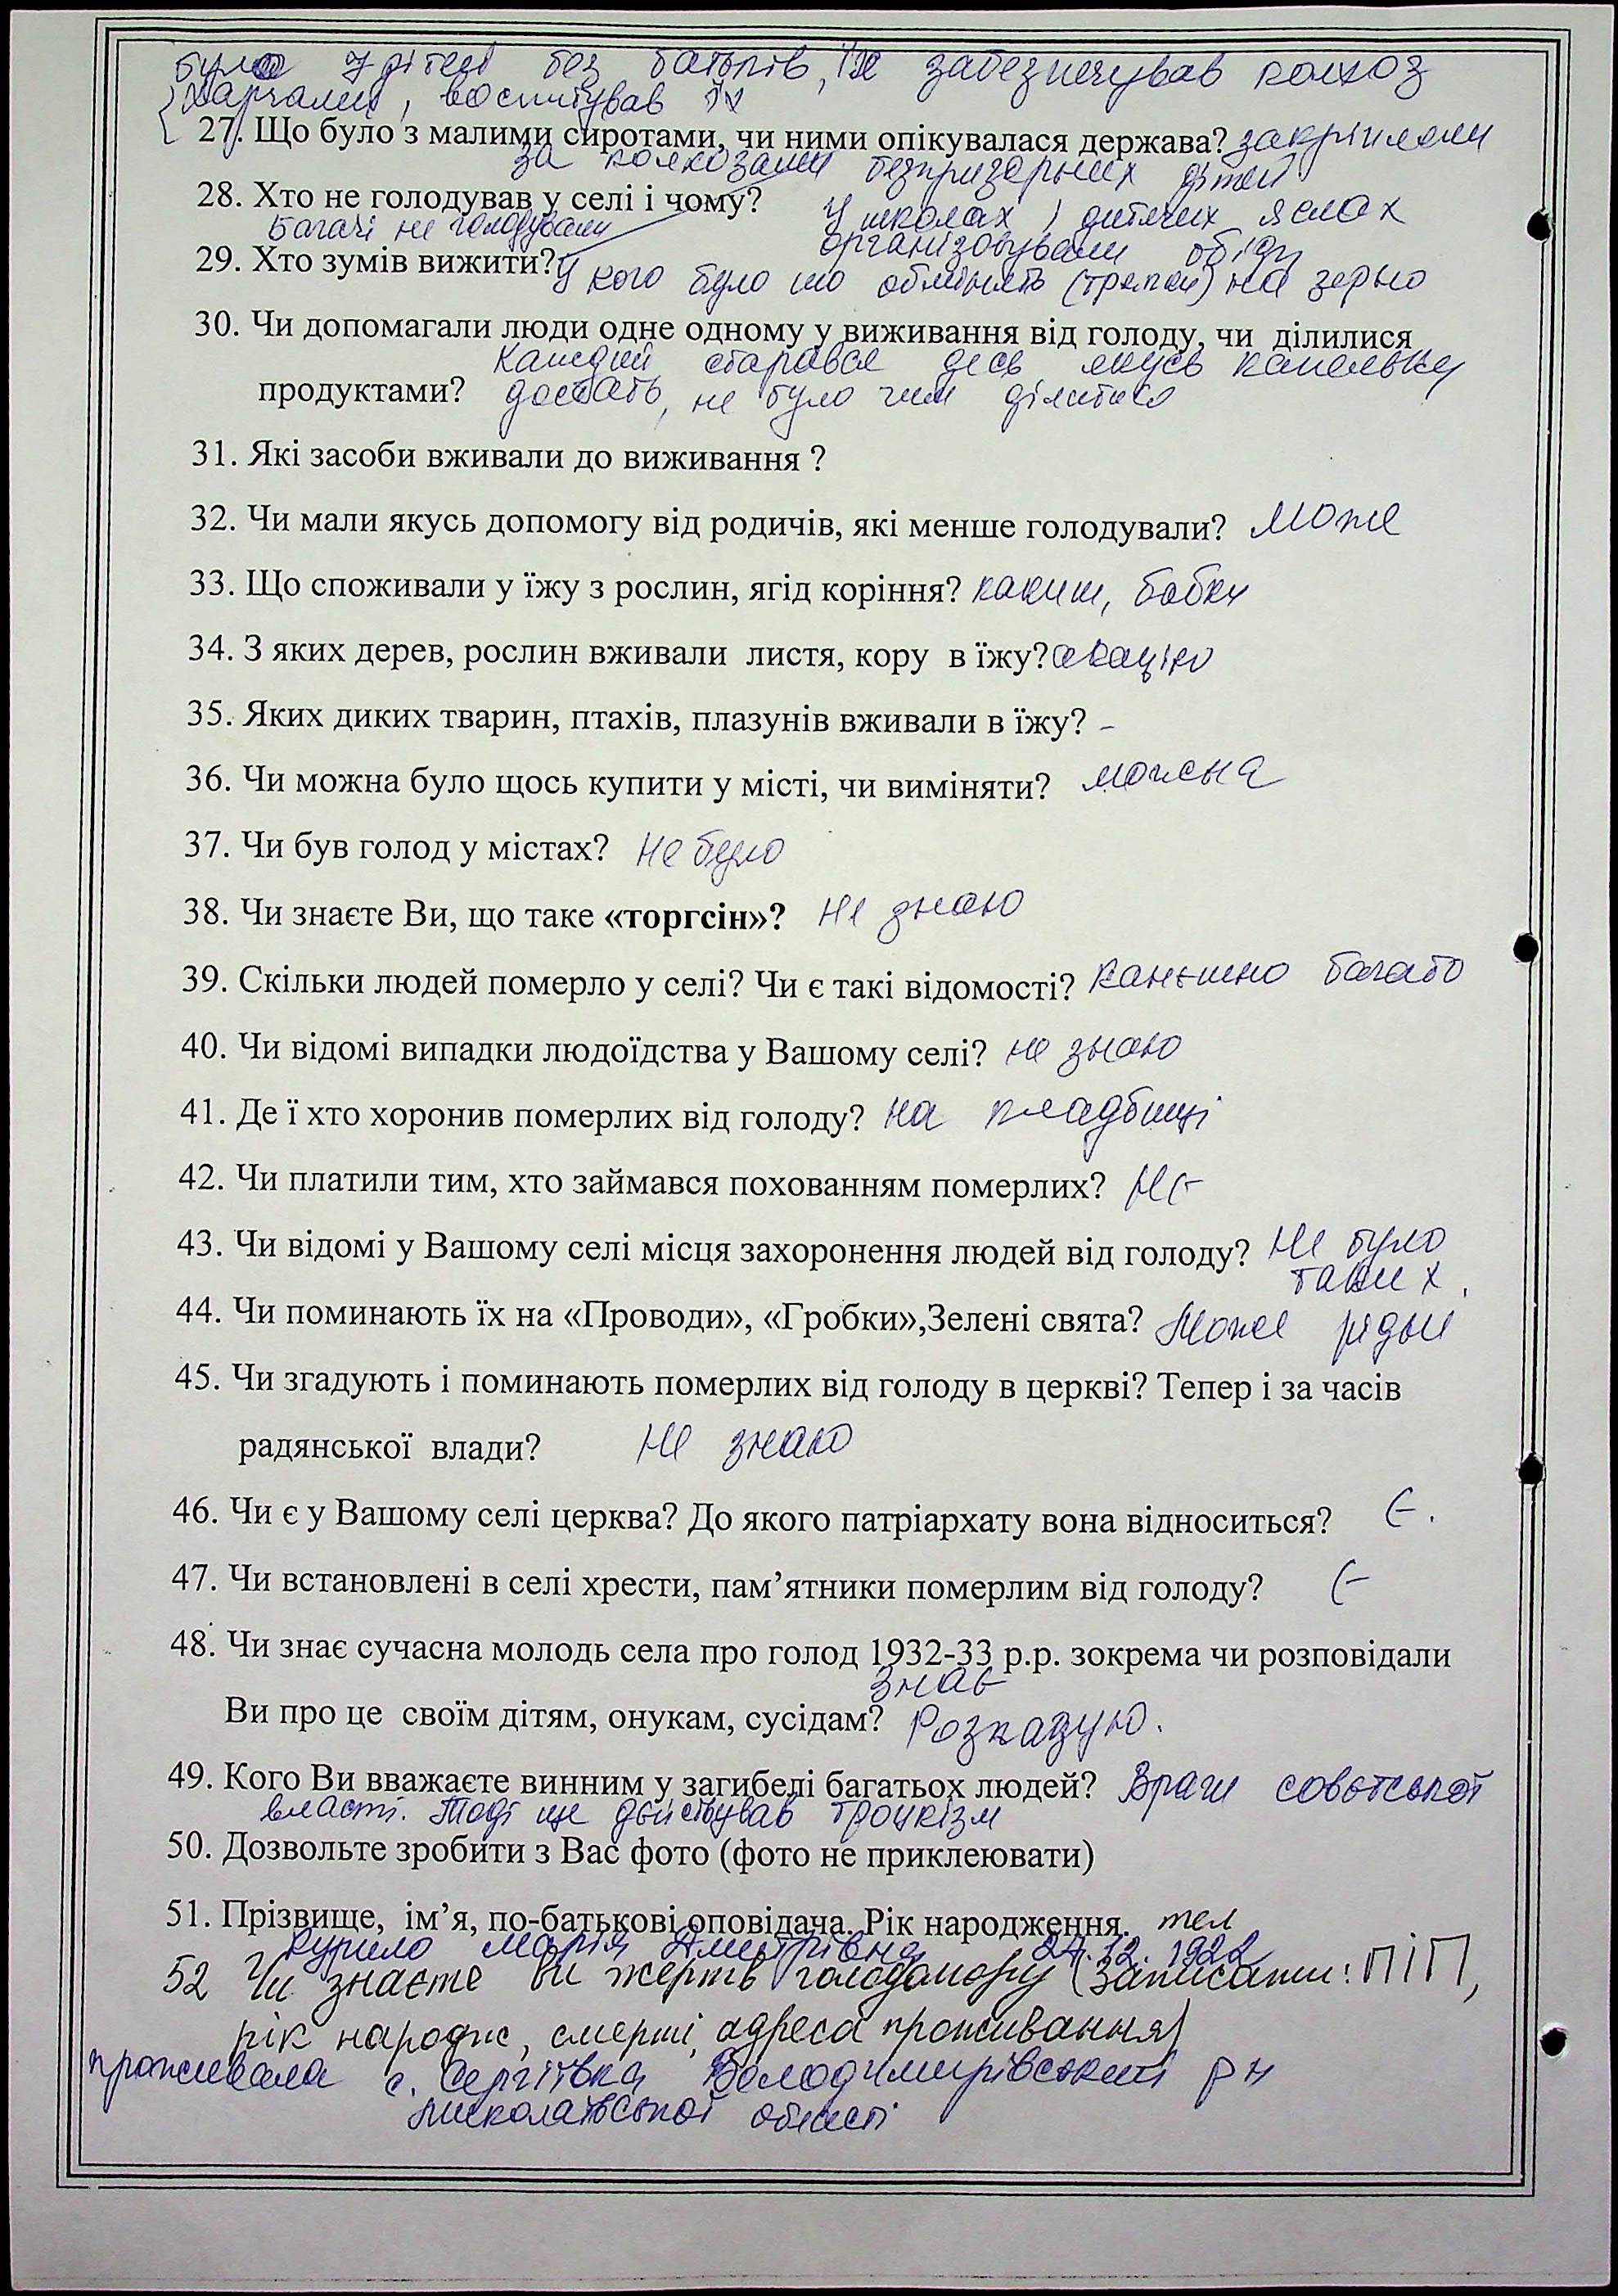 було 7 дітей без батьків, їх забезпечував колхоз
харчами, воспитував їх
27. Що було з малими сиротами, чи ними опікувалася держава? закріпляли
за колхозами безпризорних дітей
28. Хто не голодував у селі і чому? У школах, дитячих яслах
Багачі не голодували організовували обіди
29. Хто зумів вижити? У кого було що обмінять (тряпки) на зерно
30. Чи допомагали люди одне одному у виживання від голоду, чи ділилися
Каждий старався десь якусь капельку
продуктами? достать, не було чим ділитися
31. Які засоби вживали до виживання ?
32. Чи мали якусь допомогу від родичів, які менше голодували? Може
33. Що споживали у їжу з рослин, ягід коріння? калачик, бабку
34. З яких дерев, рослин вживали листя, кору в їжу? акацію
35. Яких диких тварин, птахів, плазунів вживали в їжу? -
36. Чи можна було щось купити у місті, чи виміняти? можна
37. Чи був голод у містах? Не було
38. Чи знаєте Ви, що таке «торгсін»? Не знаю
39. Скільки людей померло у селі? Чи є такі відомості? канєшно багато
40. Чи відомі випадки людоїдства у Вашому селі? не знаю
41. Де ї хто хоронив померлих від голоду? на кладбищі
42. Чи платили тим, хто займався похованням померлих? Нє
43. Чи відомі у Вашому селі місця захоронення людей від голоду? Не було
таких.
44. Чи поминають їх на «Проводи», «Гробки»,Зелені свята? Може рідні
45. Чи згадують і поминають померлих від голоду в церкві? Тепер і за часів
радянської влади? Не знаю
46. Чи є у Вашому селі церква? До якого патріархату вона відноситься? Є.
47. Чи встановлені в селі хрести, пам’ятники померлим від голоду? Є
48. Чи знає сучасна молодь села про голод 1932-33 р.р. зокрема чи розповідали
знає
Ви про це своїм дітям, онукам, сусідам? Розказую.
49. Кого Ви вважаєте винним у загибелі багатьох людей? Враги совєтської
власті. Тоді ще дєйствував троцкізм
50. Дозвольте зробити з Вас фото (фото не приклеювати)
51. Прізвище, ім’я, по-батькові оповідача. Рік народження. тел
Курило Марія Дмитрівна 24.12.1922
52 Чи знаєте ви жертв голодомору (записати: ПІП,
рік народж, смерті, адреса проживання)
проживала с. Сергіївка Володимирівський р н
Миколаївської області